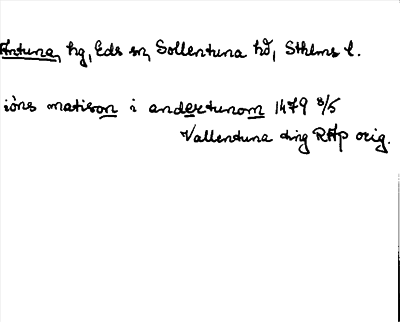 Antuna, hg, Eds sn, Sollentuna hd, Sthlms l.
iöns matison i andertunom 1479 8/5
Vallentuna ting RAp orig.